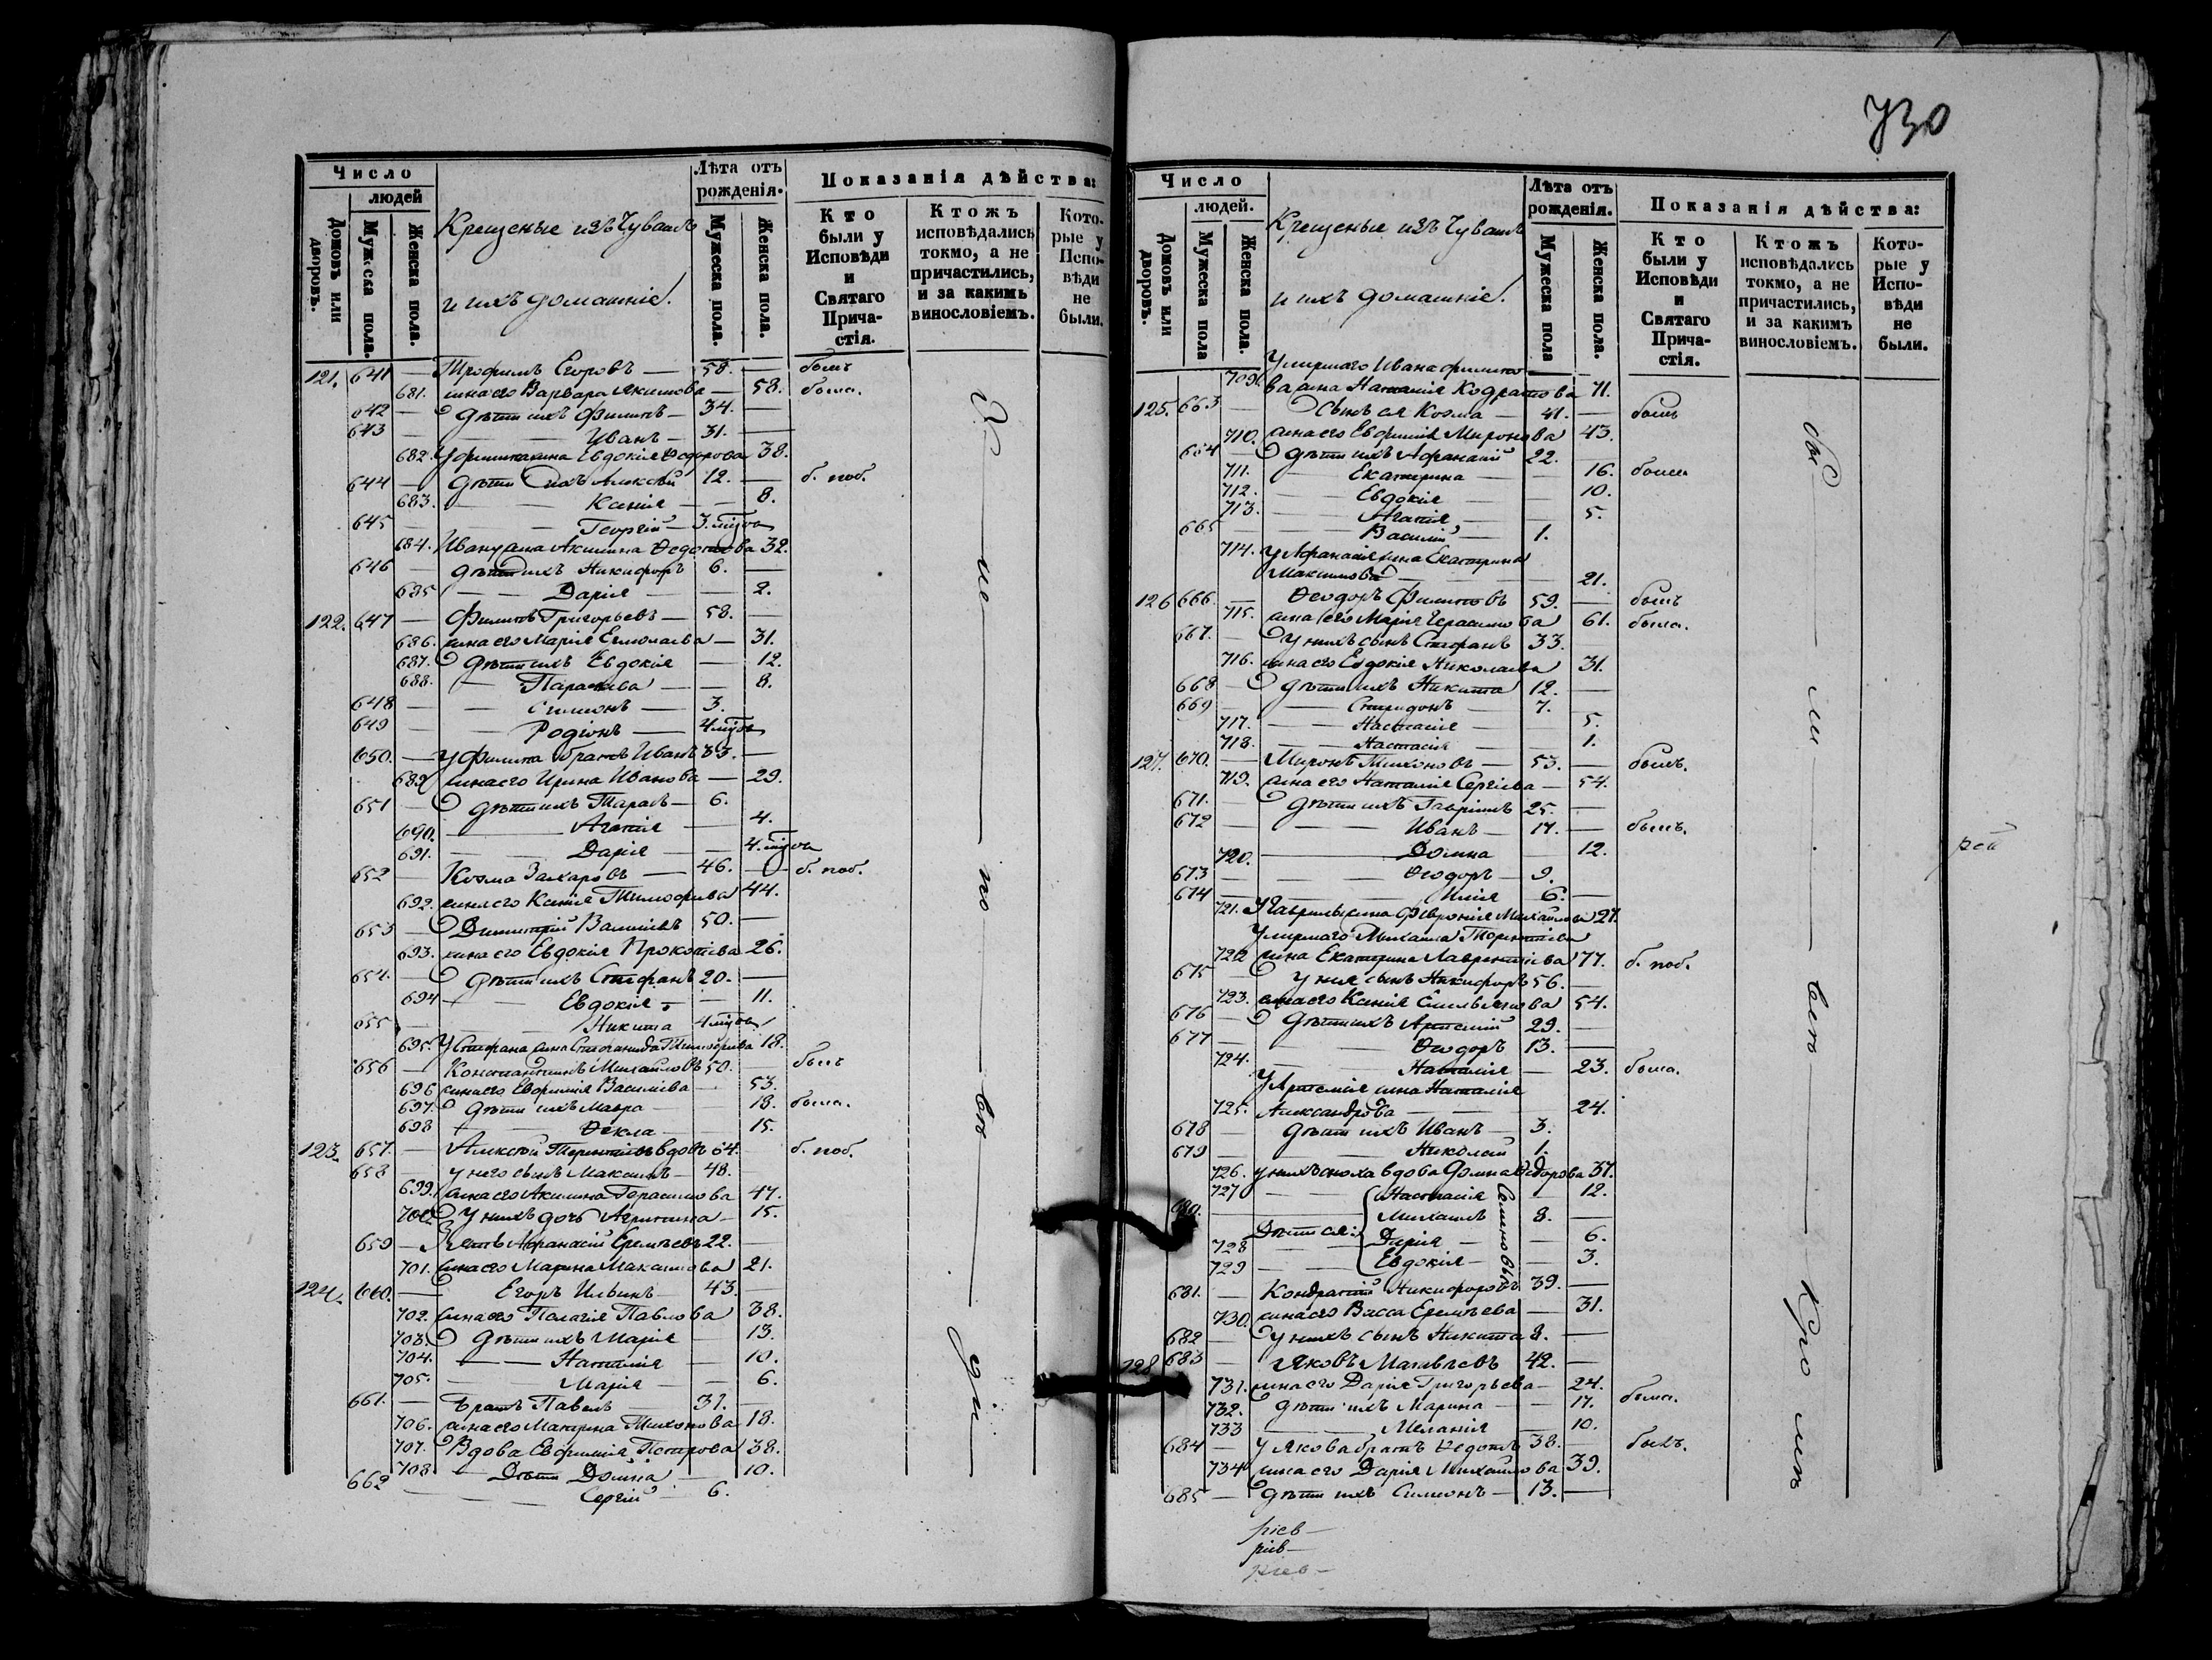 730
Число
людей
Домовъ или дворовъ.
Мужеска пола.
Женска пола.
Крещеные изъ Чувашъ
и ихъ домашніе.
Лѣта отъ рожденія.
Мужеска пола.
Женска пола.
Показанія дѣйства:
Кто были у Исповѣди и Святаго Причастія.
Ктожъ исповѣдались токмо, а не причастились, и за какимъ винословіемъ.
Которые у Исповѣди не были.
121. 641 — Трофимъ Егоровъ — 58. — былъ
681. жена его Варвара Якимова — 58. была.
642 — Дѣти ихъ Филипъ — 34. —
643 — Иванъ — 31. —
682. У Филипа жена Евдокія Ѳедорова 38.
644 — Дѣти ихъ Алексѣй 12. — б. поб.
683. — Ксенія — 8.
645 — Георгій — 3.
684. Ивану жена Акилина Ѳедотова 32.
646 — Дѣти ихъ Никифоръ 6. —
685 — — Дарія — 2.
122. 647 — Филипъ Григорьевъ — 58. —
686. жена его Марія Ермолаева — 31.
687. Дѣти ихъ Евдокія — 12.
688. — Параскева — — 8.
648 — — Симеонъ — 3.
649 — — Родіонъ — 4
650. — У Филипа братъ Иванъ 33. —
689 жена его Ирина Иванова — 29.
651 — Дѣти ихъ Тарасъ — 6.
690. — Агапія — 4.
691. — Дарія — 4.
652 — Козма Захаровъ — 46. — б. поб.
692. жена его Ксенія Тимофеева 44.
653 — Димитрій Васильевъ 50. —
693. жена его Евдокія Прокопіева 26.
654. — Дѣти ихъ Стефанъ 20. —
694 — Евдокія — 11.
655 — Никита 4
695. У Стефана жена Степанида Тимофеева 18.
656 — Константинъ Михайловъ 50. — былъ
696 жена его Евфимія Васильева — 53.
697. Дѣти ихъ Мавра — 18. была.
698 — Ѳекла — 15.
123. 657. — Алексѣй Терентьевъ вдовъ 64. — б. поб.
658 — у него сынъ Максимъ — 48.
699. жена его Акилина Герасимова 47.
700. У нихъ дочь Агрипина — 15.
659 — Зять Афанасій Еремѣевъ 22. —
701. жена его Марина Максимова 21.
124. 660. — Егоръ Ильинъ — 43. —
702. жена его Пелагія Павлова 38.
703. Дѣти ихъ Марія — 13.
704. — — Наталія — 10.
705. — Марія — — 6.
661. — Братъ Павелъ — 31. —
706. жена его Матрена Тихонова 18.
707. Вдова Евфимія Петрова 38.
708 — Дѣти Домна — 10.
662 — — Сергій — 6.
Число
людей.
Домовъ или дворовъ.
Мужеска пола
Женска пола.
Крещеные изъ Чувашъ
и ихъ домашніе.
Лѣта отъ рожденія.
Мужеска пола
Женска пола.
Показанія дѣйства:
Кто были у Исповѣди и Святаго Причастія.
Ктожъ исповѣдались токмо, а не причастились, и за какимъ винословіемъ.
Которые у Исповѣди не были.
Умершаго Ивана Филипо
709. ва жена Наталія Кодратова 71.
125. 663 — Сынъ ея Козма — 41. — былъ
710. жена его Евфимія Миронова 43.
664 — Дѣти ихъ Афанасій 22. —
711. — Екатерина — — 16. была
712. — Евдокія — 10.
713. — Агапія — — 5.
665 — Василій — 1.
714. У Афанасія жена Екатерина
Максимова — 21.
126 666. — Ѳеодоръ Филиповъ 59. — былъ
715. жена его Марія Герасимова 61. была.
667. — У нихъ сынъ Стефанъ 33.
716. жена его Евдокія Николаева 31.
668 — Дѣти ихъ Никита 12. —
669 — Спиридонъ — 7. —
717. — Настасія — 5.
718. — Настасія — 1.
127. 670. — Миронъ Тихоновъ — 53. — былъ.
719. жена его Наталія Сергіева — 54.
671. Дѣти ихъ Гавріилъ 25. —
672 — Иванъ — 17. — былъ.
720. — Домна — 12.
673 — Ѳеодоръ — 9.
674 — Илія 6. —
721. У Гаврилы жена Февронія Михайлова 27.
Умершаго Михаила Терентіева
722 жена Екатерина Лаврентіева 77. б. поб.
675 — У нея сынъ Никифоръ 56. —
723. жена его Ксенія Емельянова 54.
676 — Дѣти ихъ Артемій 29. —
677 — Ѳеодоръ 13. —
724. — Наталія — 23. была.
У Артемія жена Наталія
725. Александрова — 24.
678 — Дѣти ихъ Иванъ — 3.
679 — Николай 1.
726. у нихъ сноха вдова Домна Ѳедорова 37.
727 — Настасія — 12.
680. — Михаилъ 8. —
Дѣти ея: Семеновы
728 — Дарія — — 6.
729 — — Евдокія — — 3.
681. — Кондратій Никифоровъ 39. —
730. жена его Васса Еремѣева — 31.
682 — У нихъ сынъ Никита 8. —
128 683 — Яковъ Матвѣевъ 42. —
731. жена его Дарія Григорьева — 24.
732. Дѣти ихъ Марина — — 17. была.
733 — Меланія — 10.
684 — У Якова братъ Ѳедотъ 38. — былъ.
734 жена его Дарія Михайлова 39.
685 — Дѣти ихъ Симеонъ — 13. —